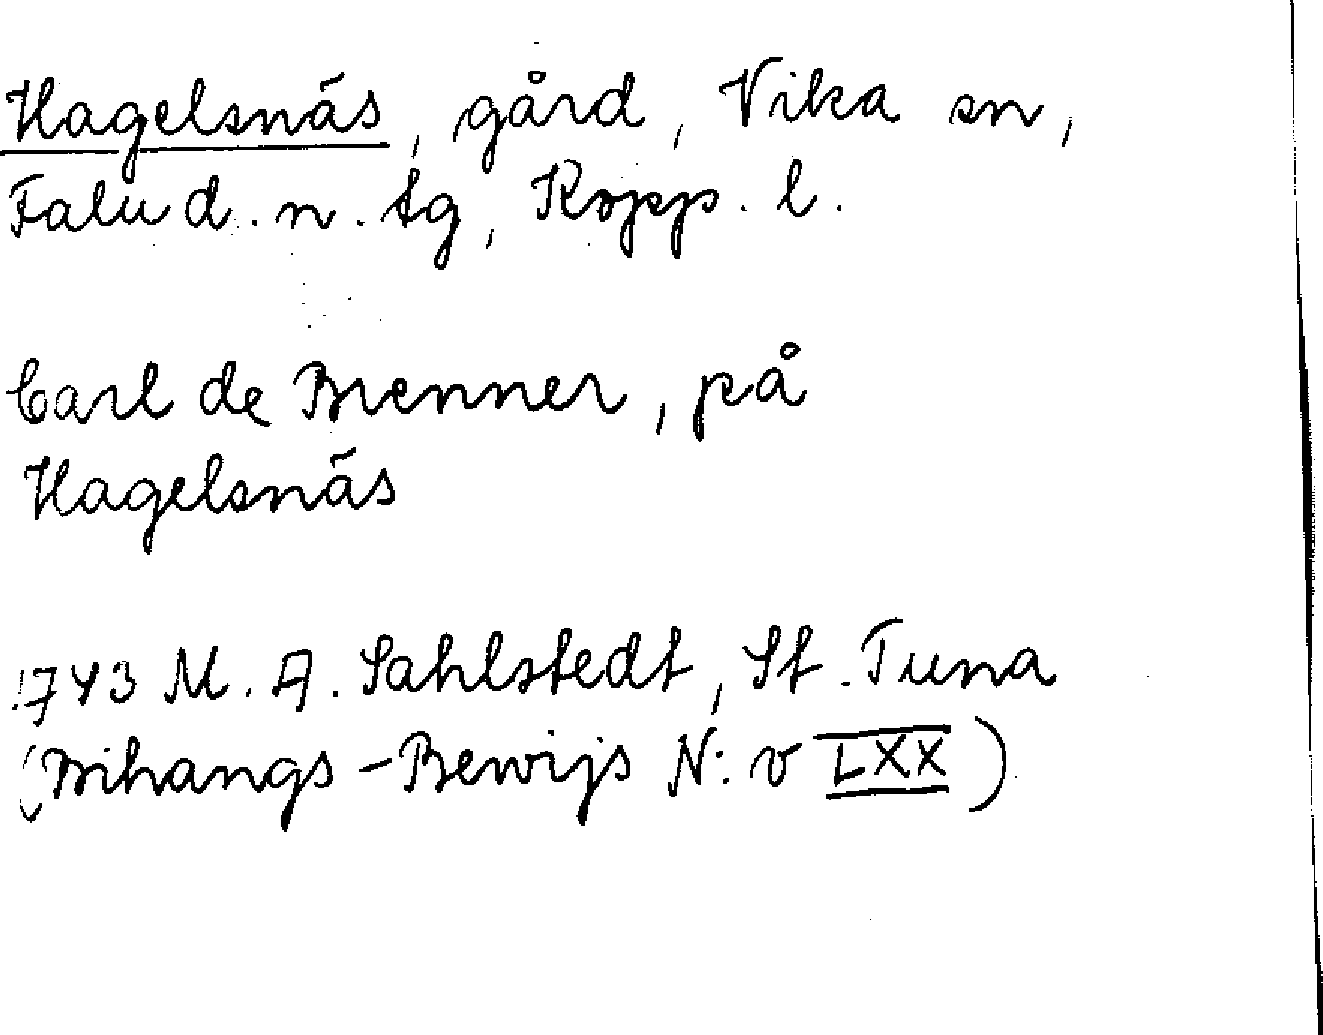 Hagelsnäs, gård, Vika sn,
Falu d. n. tg, Kopp. l.
Carl de Brenner, på
Hagelsnäs
1743 M. A. Sahlstedt, St. Tuna
(Bihangs-Bewijs N:o LXX)